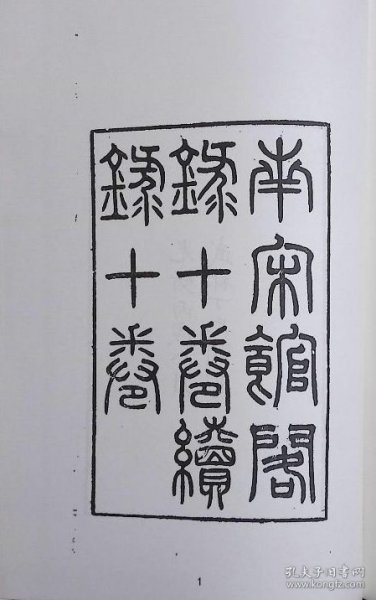 南宋館閣
錄十卷續
錄十卷
1
孔夫子旧书网
www.kongfz.com